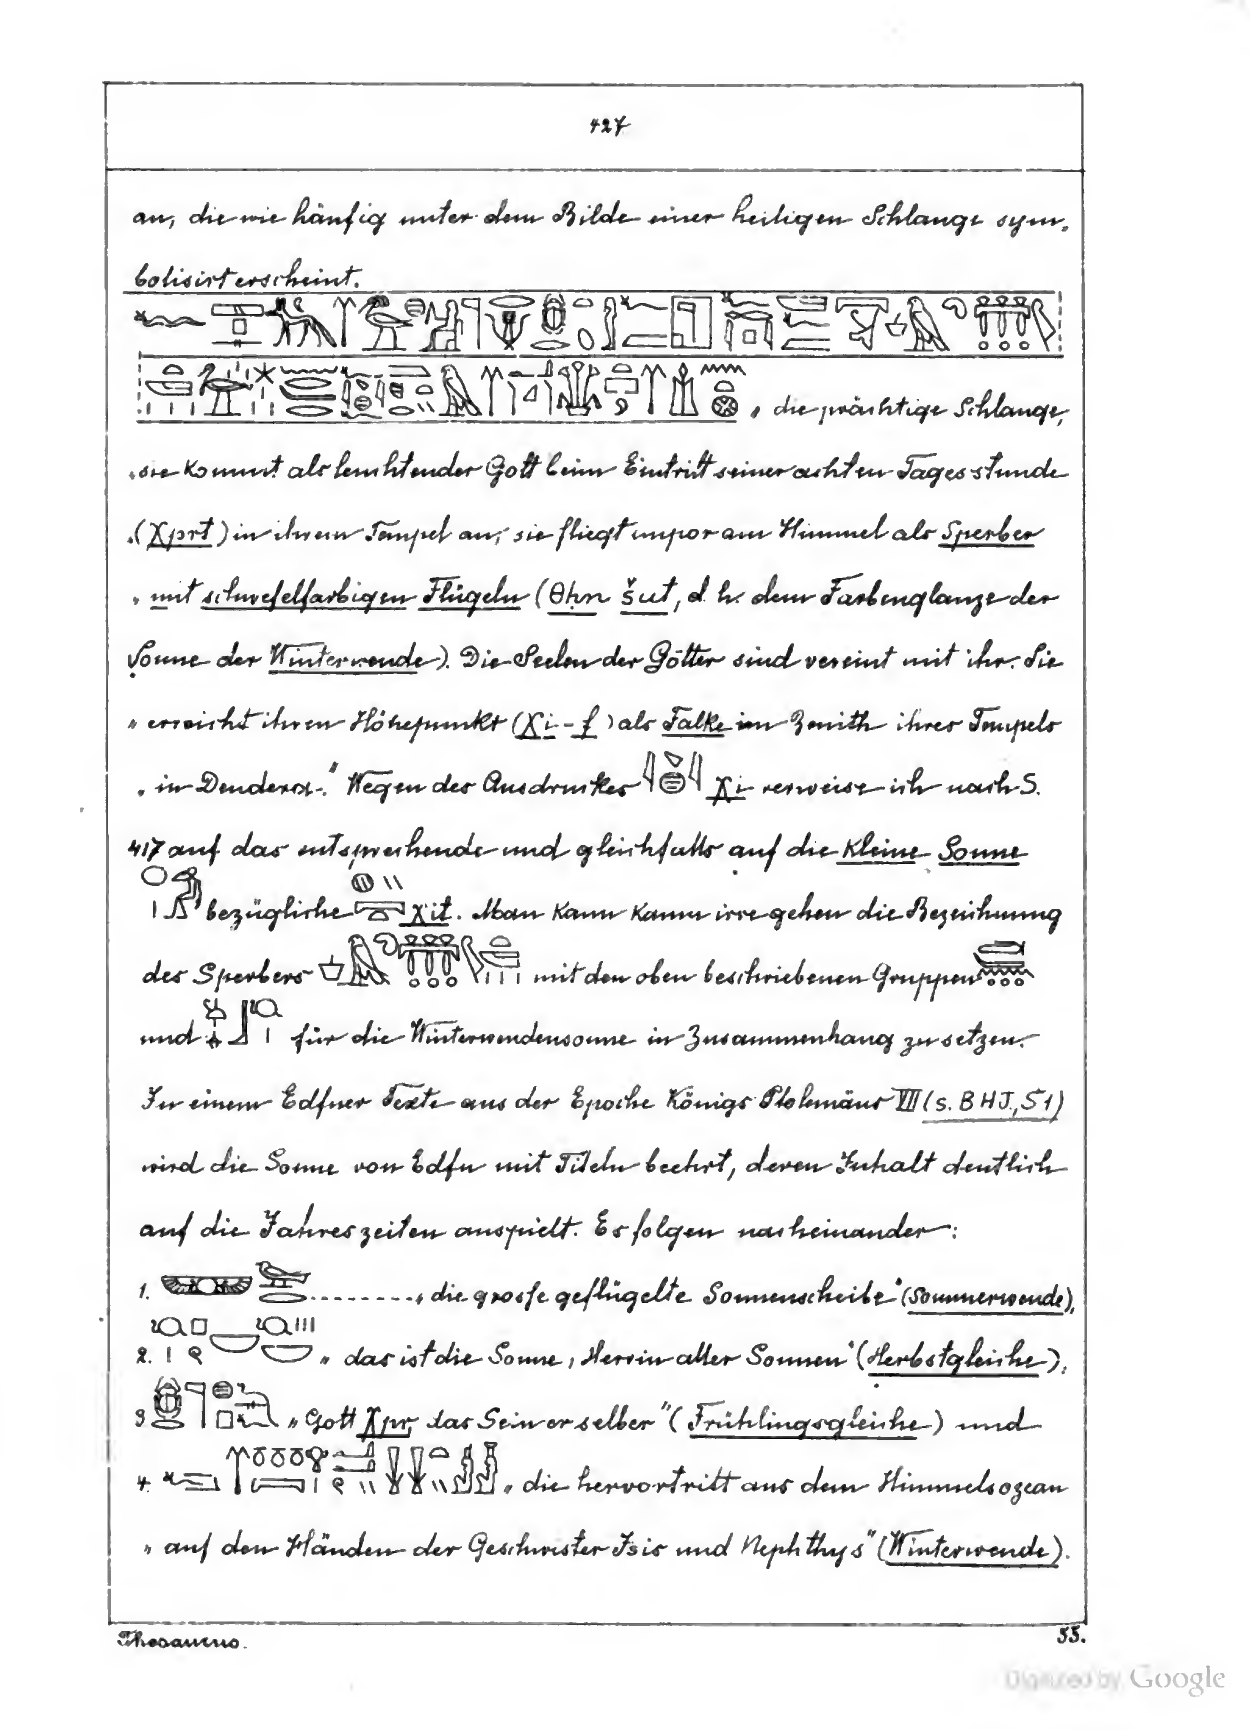 427
an, die wie häufig unter dem Bilde einer heiligen Schlange sym-
bolisirt erscheint.
„ die prächtige Schlange,
„ sie kommt als leuchtender Gott beim Eintritt seiner achten Tagesstunde
„ (Xprt) in ihrem Tempel an, sie fliegt empor am Himmel als Sperber
„ mit schwefelfarbigen Flügeln (θḥn šut, d. h. dem Farbenglanze der
Sonne der Winterwende). Die Seelen der Götter sind vereint mit ihr. Sie
„ erreicht ihren Höhepunkt (Xi-f) als Falke im Zenith ihres Tempels
„ in Dendera." Wegen des Ausdruckes Xi verweise ich nach S.
417 auf das entsprechende und gleichfalls auf die kleine Sonne
bezügliche Xit. Man kann kaum irre gehen die Bezeichnung
des Sperbers mit den oben beschriebenen Gruppen
und für die Winterwendensonne in Zusammenhang zu setzen.
In einem Edfuer Texte aus der Epoche Königs Ptolemäus VII (s. BHJ., 51)
wird die Sonne von Edfu mit Titeln beehrt, deren Inhalt deutlich
auf die Jahreszeiten anspielt. Es folgen nacheinander:
1. „ die grosse geflügelte Sonnenscheibe" (Sommerwende),
2. „ das ist die Sonne, Herrin aller Sonnen" (Herbstgleiche),
3 „ Gott Xpr, das Sein er selber" (Frühlingsgleiche) und
4. „ die hervortritt aus dem Himmelsozean
„ auf den Händen der Geschwister Isis und Nephthys" (Winterwende).
Thesaurus. 55.
Digitized by Google